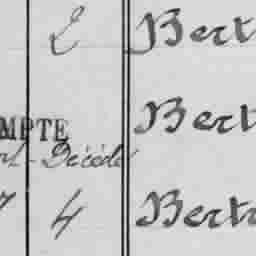 2 Bert
Bert
MPTE
Décédé
4 Bert